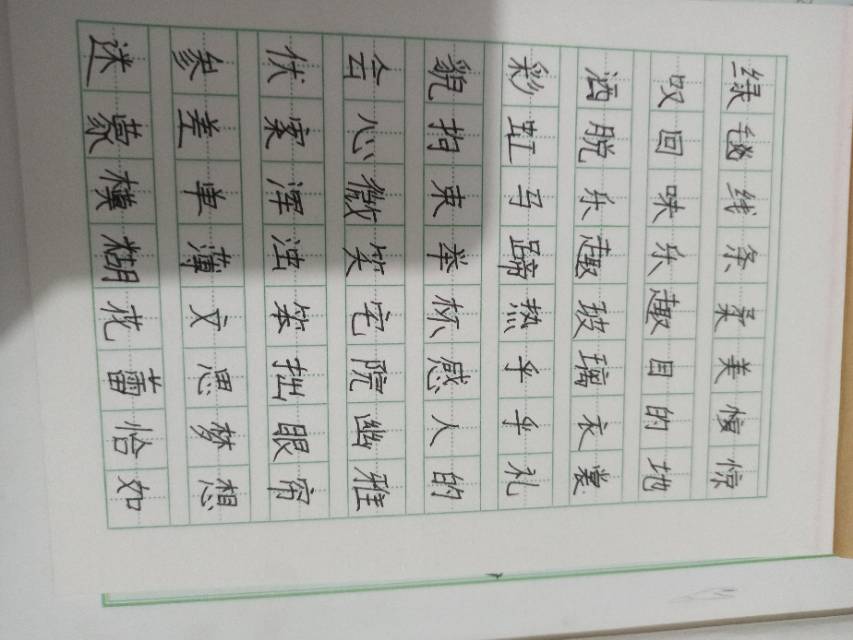 绿毯线条柔美惊
叹回味乐趣目的地
洒脱乐趣玻璃衣裳
彩虹马蹄热乎乎礼
貌拘束举杯感人的
会心微笑宅院幽雅
伏案浑浊笨拙眼帘
参差单薄文思梦想
迷蒙模糊花蕾恰如